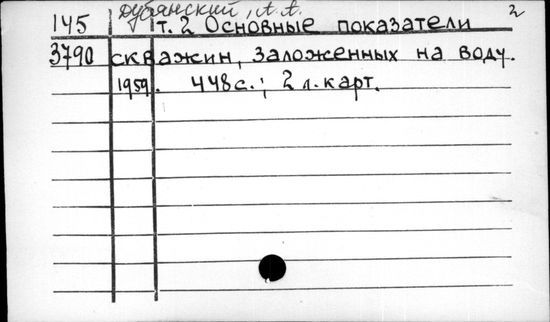 Дубянский, А. А. 2
145 т. 2 Основные показатели
3790 скважин, заложенных на воду.
1959. 448 с.; 2 л. карт.